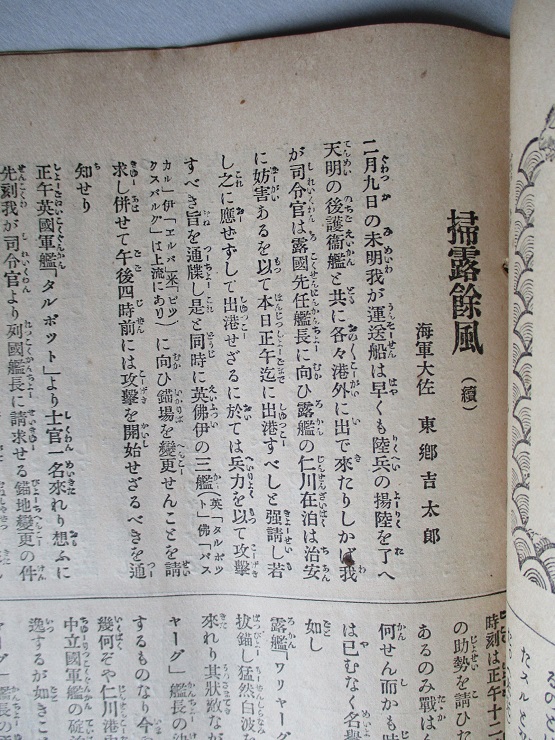 掃露餘風(續)
海軍大佐 東鄕吉太郎
二月九日の未明我が運送船は早くも陸兵の揚陸を了へ
天明の後護衞艦と共に各々港外に出で來たりしかば我
が司令官は露國先任艦長に向ひ露艦の仁川在泊は治安
に妨害あるを以て本日正午迄に出港すべしと强請し若
し之に應せずして出港せざるに於ては兵力を以て攻擊
すべき旨を通牒し是と同時に英佛伊の三艦(英「タルボット」佛「パス
カル」伊「エルバ」米「ビックスバルグ」は上流にあり)に向ひ錨場を變更せんことを請
求し併せて午後四時前には攻擊を開始せざるべきを通
知せり
正午英國軍艦「タルボット」より士官一名來れり想ふに
先刻我が司令官より列國艦長に請求せる錨地變更の件
時刻は正午十二
の助勢を請ひた
あるのみ戰はん
何せん而かも時
は已むなく名譽
如し
露艦「ワリャーグ
拔錨し猛然白波を
來れり其狀況なが
ヤーグ」艦長の
するものなり今
幾何ぞや仁川港
中立國軍艦の碇泊
逸するが如きこ
ャーグ」艦長の